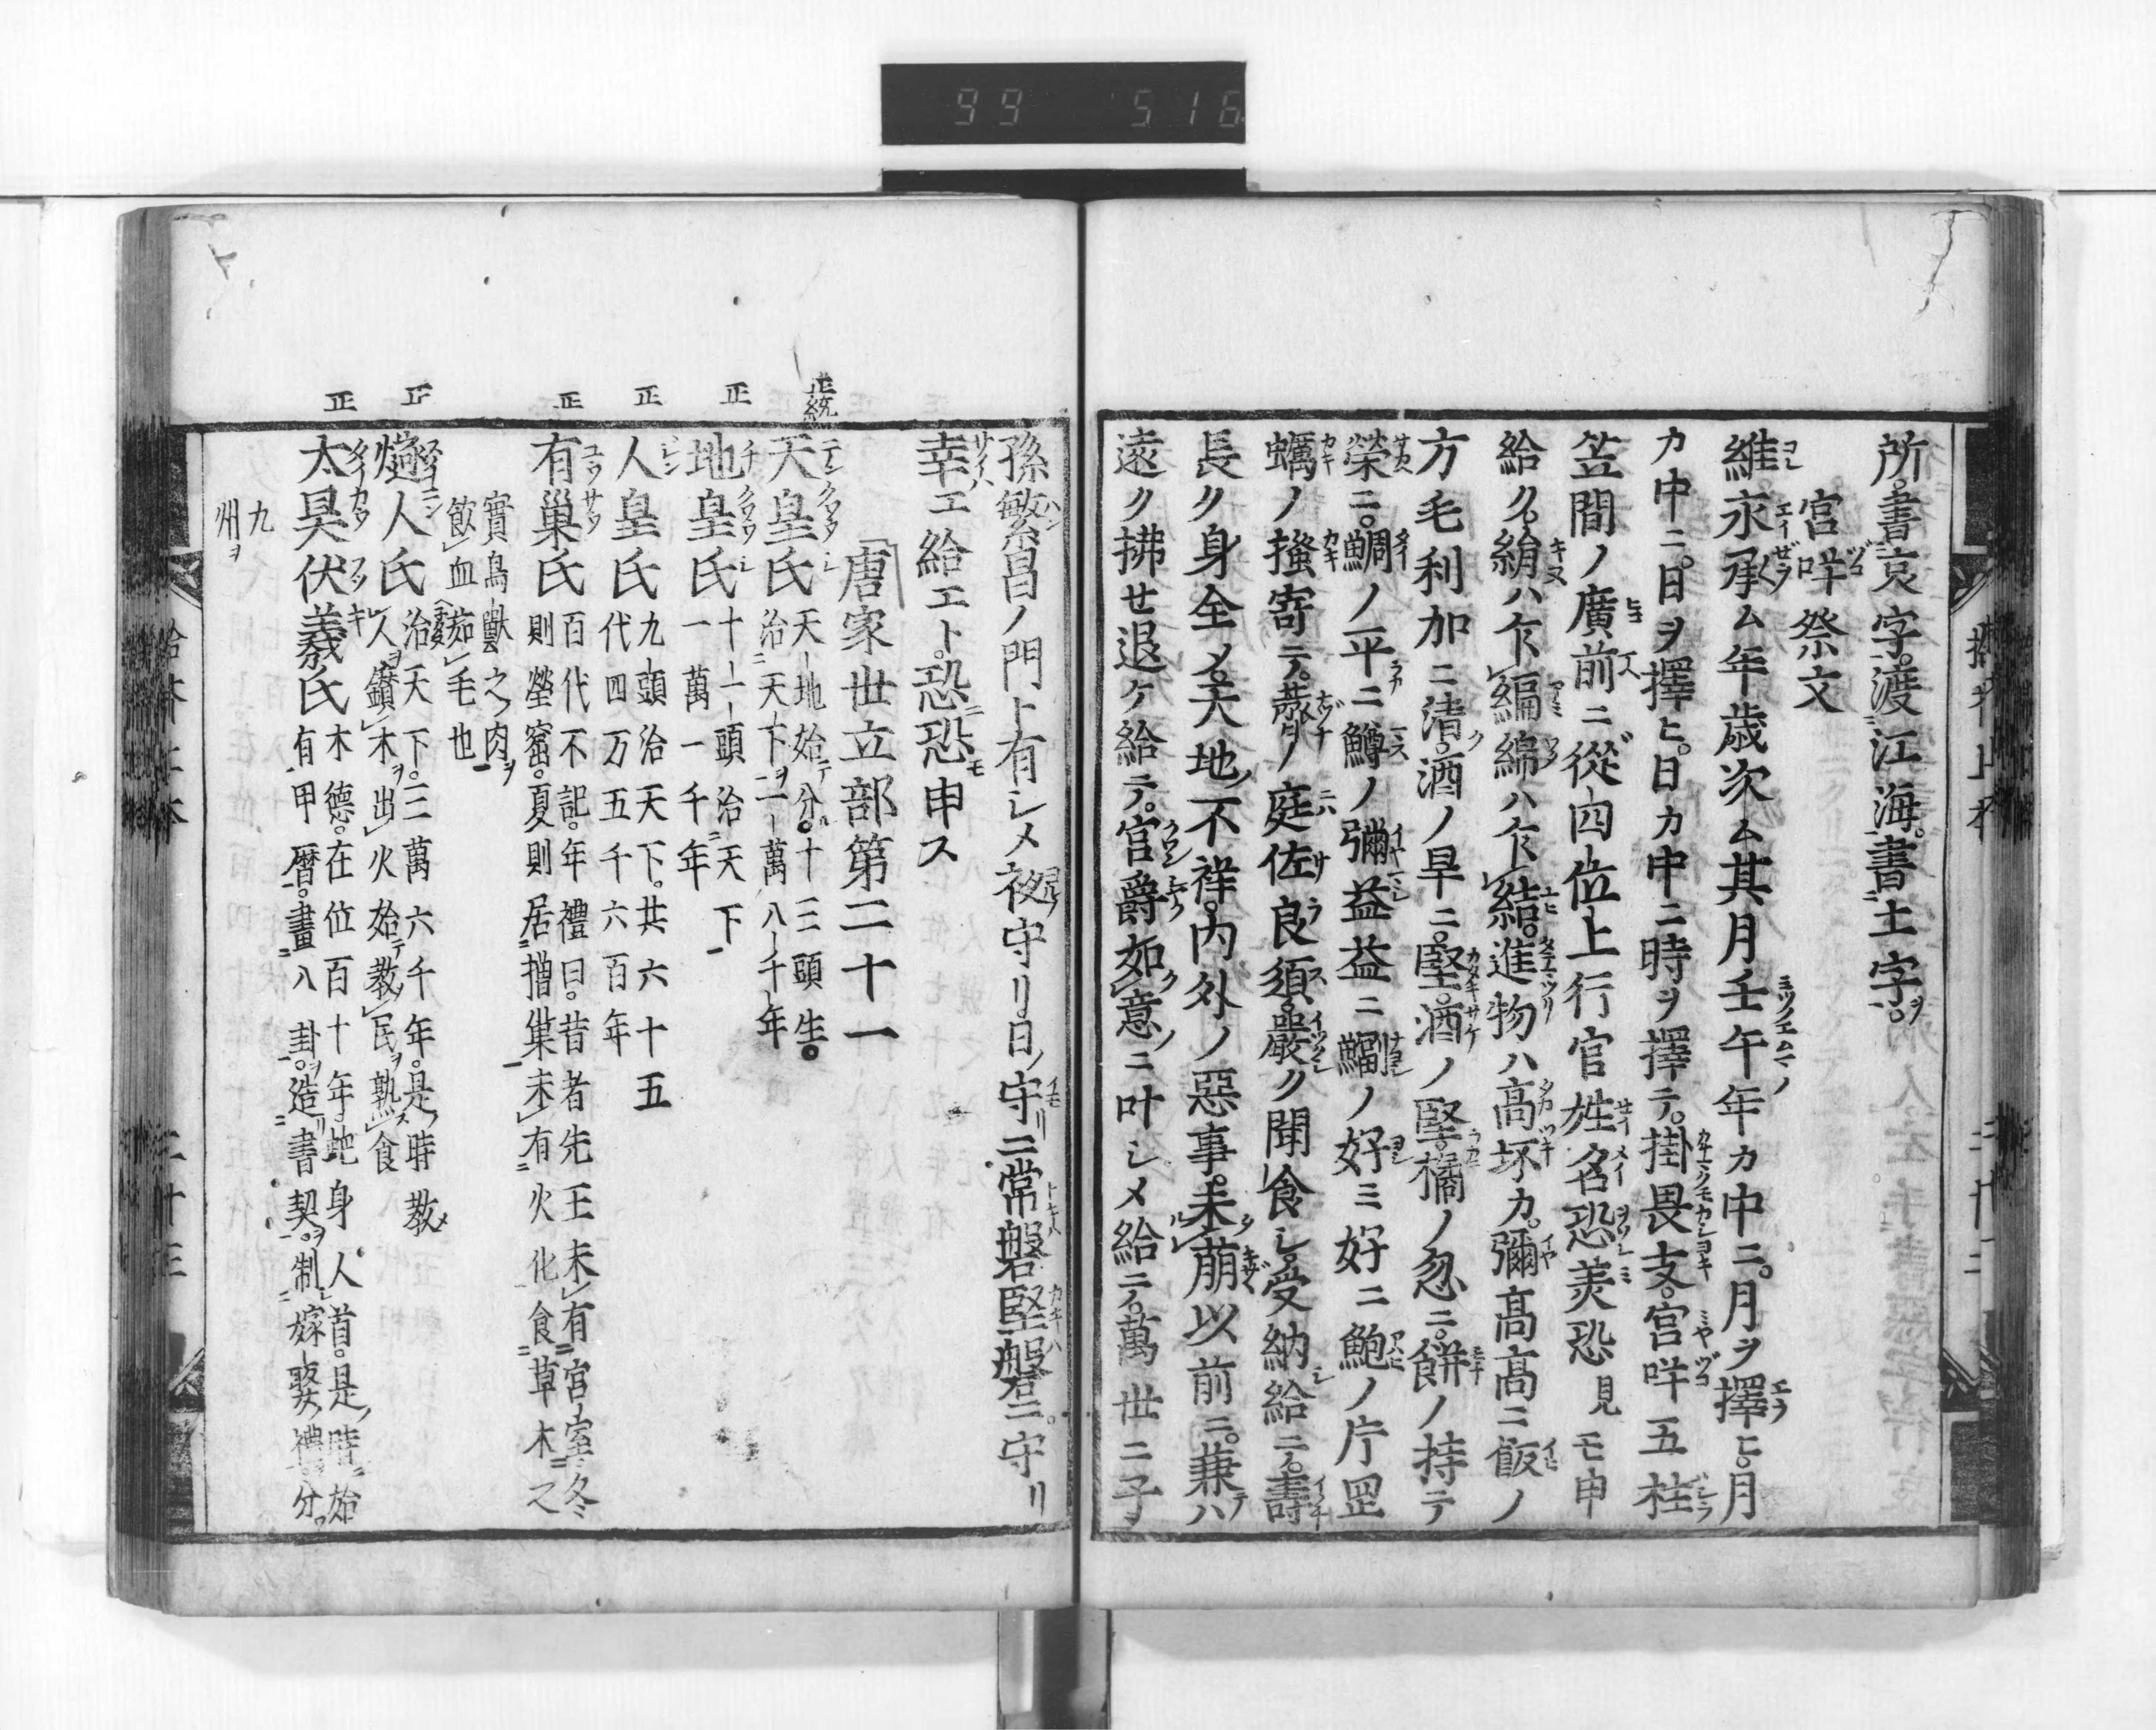 99 516
所。書哀字。渡江海。書土字。
宮咩祭文
維永承ム年歳次ム其月壬午年カ中ニ。月ヲ擇ヒ。月
カ中ニ。日ヲ擇ヒ。日カ中ニ時ヲ擇テ。掛畏支。宮咩五柱
笠間ノ廣前ニ從四位上行官姓名恐美恐見モ申
給ク。絹ハ乍編綿ハ乍結。進物ハ高坏カ。彌高高ニ飯ノ
方毛利加ニ清。酒ノ旱ニ。堅。酒ノ堅。橘ノ忽ニ。餅ノ持テ
榮ニ。鯛ノ平ニ鱒ノ彌益益ニ鰡ノ好ミ好ニ鮑ノ庁罡
蠣ノ搔寄テ。ノ庭佐良須。嚴ク聞食シ。受納給ニテ。壽
長ク身全メ。天地ノ不祥。内外ノ惡事。未萠以前ニ。兼テハ
遠ク拂セ退ケ給テ。官爵如意ニ叶シメ給ニテ。萬世ニ子
孫繁昌ノ門ト有シメ夜守リ。日ノ守リニ常磐堅磐ニ。守リ
幸エ給エト。恐恐モ申ス
唐家世立部第二十一
正統
天皇氏 天地始テ分。十三頭生。
治天下ヲ一萬八千年
正
地皇氏 十一頭治天下
一萬一千年
正
人皇氏 九頭治天下。共六十五
代四万五千六百年
正
有巢氏 百代不記。年禮曰。昔者先王未有宮室冬
則塋窟。夏則居橧巢未有火化食草木之
實鳥獸之肉ヲ
飲血茹毛也
正
燧人氏 治天下。三萬六千年。是時教
人鑽木ヲ出火始テ教民ヲ熟食
正
太昊伏羲氏 木德。在位百十年蛇身人首。是時始
有甲曆。畫八卦。造書契。制嫁娶禮分
九
州ヲ
二十三